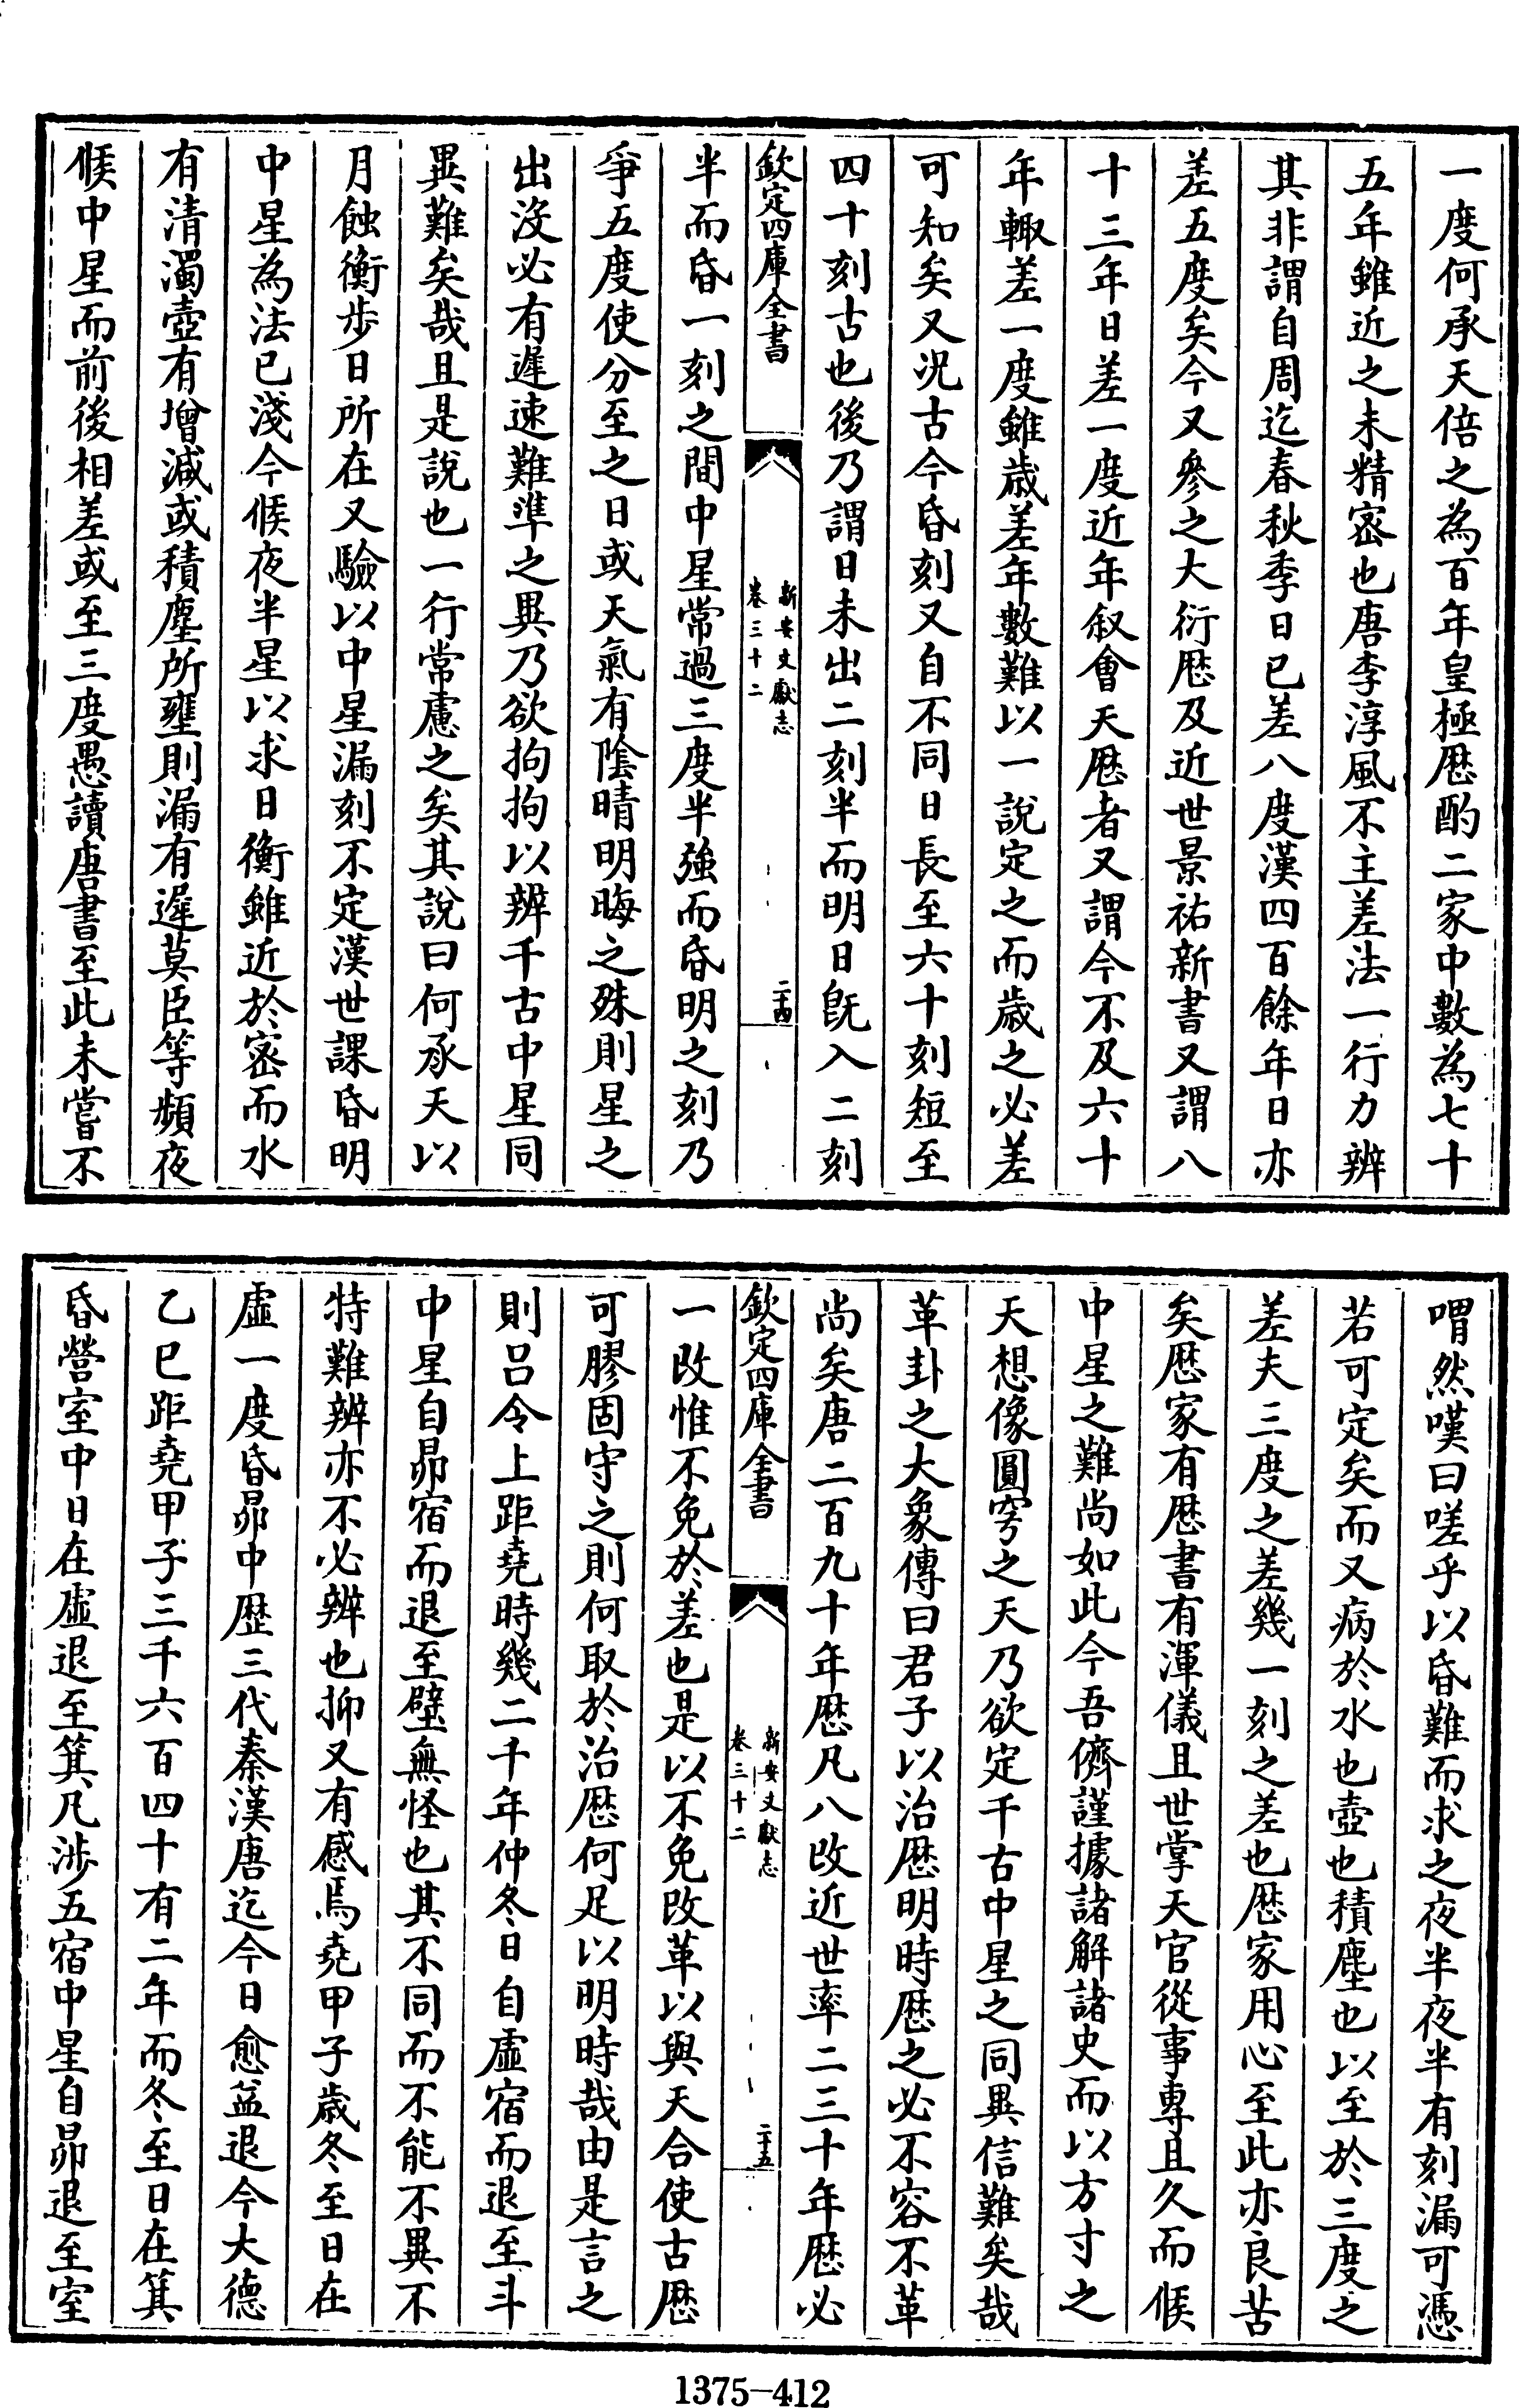 一度何承天倍之為百年皇極厯酌二家中數為七十
五年雖近之未精密也唐李淳風不主差法一行力辨
其非謂自周迄春秋季日已差八度漢四百餘年日亦
差五度矣今又參之大衍厯及近世景祐新書又謂八
十三年日差一度近年叙會天厯者又謂今不及六十
年輙差一度雖歳差年數難以一說定之而歳之必差
可知矣又況古今昏刻又自不同日長至六十刻短至
四十刻古也後乃謂日未出二刻半而明日旣入二刻
欽定四庫全書
新安文獻志
卷三十二
二十四
半而昏一刻之間中星常過三度半強而昏明之刻乃
爭五度使分至之日或天氣有陰晴明晦之殊則星之
出沒必有遲速難準之異乃欲拘拘以辨千古中星同
異難矣哉且是說也一行常慮之矣其說曰何承天以
月蝕衝步日所在又驗以中星漏刻不定漢世課昏明
中星為法已淺今候夜半星以求日衝雖近於密而水
有清濁壺有增減或積塵所壅則漏有遲莫臣等頻夜
候中星而前後相差或至三度愚讀唐書至此未嘗不
喟然嘆曰嗟乎以昏難而求之夜半夜半有刻漏可憑
若可定矣而又病於水也壺也積塵也以至於三度之
差夫三度之差幾一刻之差也厯家用心至此亦良苦
矣厯家有厯書有渾儀且世掌天官從事專且久而候
中星之難尚如此今吾儕謹據諸解諸史而以方寸之
天想像圓穹之天乃欲定千古中星之同異信難矣哉
革卦之大象傳曰君子以治厯明時厯之必不容不革
尚矣唐二百九十年厯凡八改近世率二三十年厯必
欽定四庫全書
新安文獻志
卷三十二
二十五
一改惟不免於差也是以不免改革以與天合使古厯
可膠固守之則何取於治厯何足以明時哉由是言之
則呂令上距堯時幾二千年仲冬日自虛宿而退至斗
中星自昴宿而退至壁無怪也其不同而不能不異不
特難辨亦不必辨也抑又有感焉堯甲子歳冬至日在
虛一度昏昴中歴三代秦漢唐迄今日愈益退今大德
乙巳距堯甲子三千六百四十有二年而冬至日在箕
昏營室中日在虛退至箕凡涉五宿中星自昴退至室
1375-412